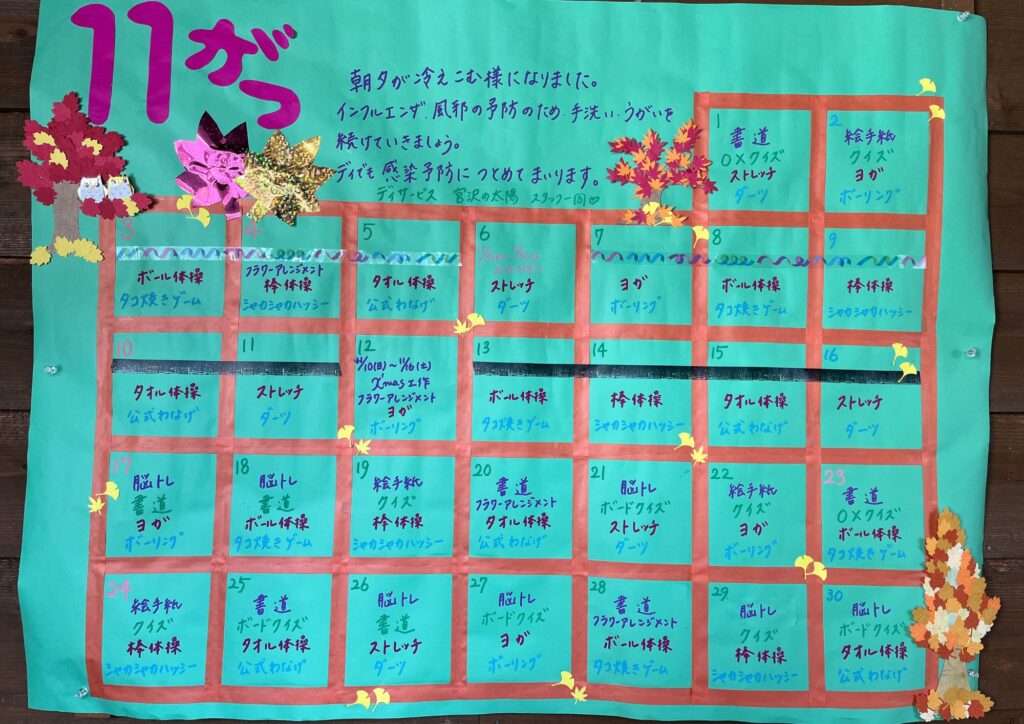 11がつ
朝夕が冷えこむ様になりました。
インフルエンザ、風邪の予防のため、手洗い、うがいを
続けていきましょう。
デイでも感染予防につとめてまいります。
デイサービス 宮沢の太陽 スタッフ一同♡
1
書道
○×クイズ
ストレッチ
ダーツ
2
絵手紙
クイズ
ヨガ
ボーリング
3
ボール体操
タコ焼きゲーム
4
フラワーアレンジメント
棒体操
シャカシャカハッシー
5
タオル体操
公式わなげ
6
ストレッチ
ダーツ
7
ヨガ
ボーリング
8
ボール体操
タコ焼きゲーム
9
棒体操
シャカシャカハッシー
10
タオル体操
公式わなげ
11
ストレッチ
ダーツ
12
11/10(日)~11/16(土)
X'mas工作
フラワーアレンジメント
ヨガ
ボーリング
13
ボール体操
タコ焼きゲーム
14
棒体操
シャカシャカハッシー
15
タオル体操
公式わなげ
16
ストレッチ
ダーツ
17
脳トレ
書道
ヨガ
ボーリング
18
脳トレ
書道
ボール体操
タコ焼きゲーム
19
絵手紙
クイズ
棒体操
シャカシャカハッシー
20
書道
フラワーアレンジメント
タオル体操
公式わなげ
21
脳トレ
ボードクイズ
ストレッチ
ダーツ
22
絵手紙
クイズ
ヨガ
ボーリング
23
書道
○×クイズ
ボール体操
タコ焼きゲーム
24
絵手紙
クイズ
棒体操
シャカシャカハッシー
25
書道
ボードクイズ
タオル体操
公式わなげ
26
脳トレ
書道
ストレッチ
ダーツ
27
脳トレ
ボードクイズ
ヨガ
ボーリング
28
書道
フラワーアレンジメント
ボール体操
タコ焼きゲーム
29
脳トレ
クイズ
棒体操
シャカシャカハッシー
30
脳トレ
ボードクイズ
タオル体操
公式わなげ